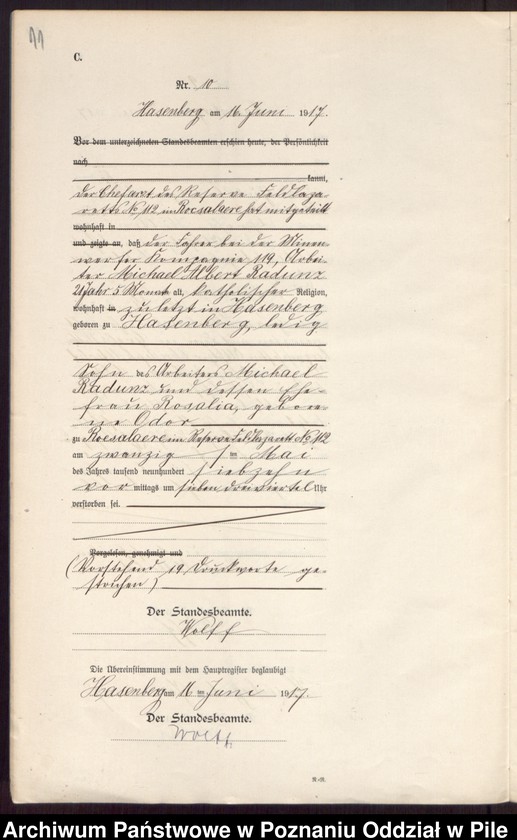 11
C.
Nr. 10
Hasenberg am 16. Juni 1917.
Vor dem unterzeichneten Standesbeamten erschien heute, der Persönlichkeit
nach
kannt,
Der Chefarzt des Reserve Feldlaza-
retts No. 112 in Roeselaere hat mitgeteilt
wohnhaft in
und zeigte an, daß der Fahrer bei der Minen
werfer Kompagnie 119, Arbei-
ter Michael Albert Radunz
21 Jahr 5 Monate alt, katholischer Religion,
wohnhaft in zuletzt in Hasenberg
geboren zu Hasenberg, ledig
Sohn des Arbeiters Michael
Radunz und dessen Ehe-
frau Rosalia, gebore-
ne Odor
zu Roeselaere im Reservefeldlazarett No 112
am zwanzig im Mai
des Jahres tausend neunhundert siebzehn
vor mittags um sieben dreiviertel Uhr
verstorben sei.
Vorgelesen, genehmigt und
(Vorstehend 19 Druckworte ge-
strichen)
Der Standesbeamte.
Wolff
Die Übereinstimmung mit dem Hauptregister beglaubigt
Hasenberg am 16 ten Juni 1917.
Der Standesbeamte.
Wolff.
R.-R.
Archiwum Państwowe w Poznaniu Oddział w Pile